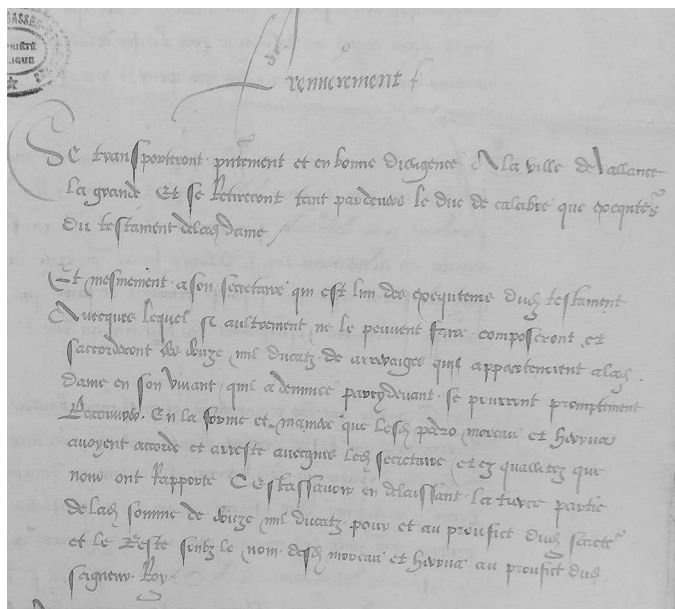 Premierement
Se transporteront pntement et en bonne dilligence A la ville de Vallance
la grande Et se Retireront tant pardevers le duc de calabre que
du testament delad dame
Et mesmement a son secretaire qui est lun des dud testament
Avecques lequel se aultrement ne le peuvent faire composeront et
saccorderont des douze mil ducatz de arreraiges quil appartenient a lad
dame en son vivant qui pardevant se pourront promptement
Recouvrer En la forme et maniere que lesd pedro moreau et
avoyent accorde et arreste avecques led secretaire et quallitez que
nous ont Rapporte Cestassavoir en delaissant la tierce partie
delad somme de douze mil ducatz pour et au prouffict dud
et le Reste soubz le nom desd moreau et au prouffict dud
seigneur Roy